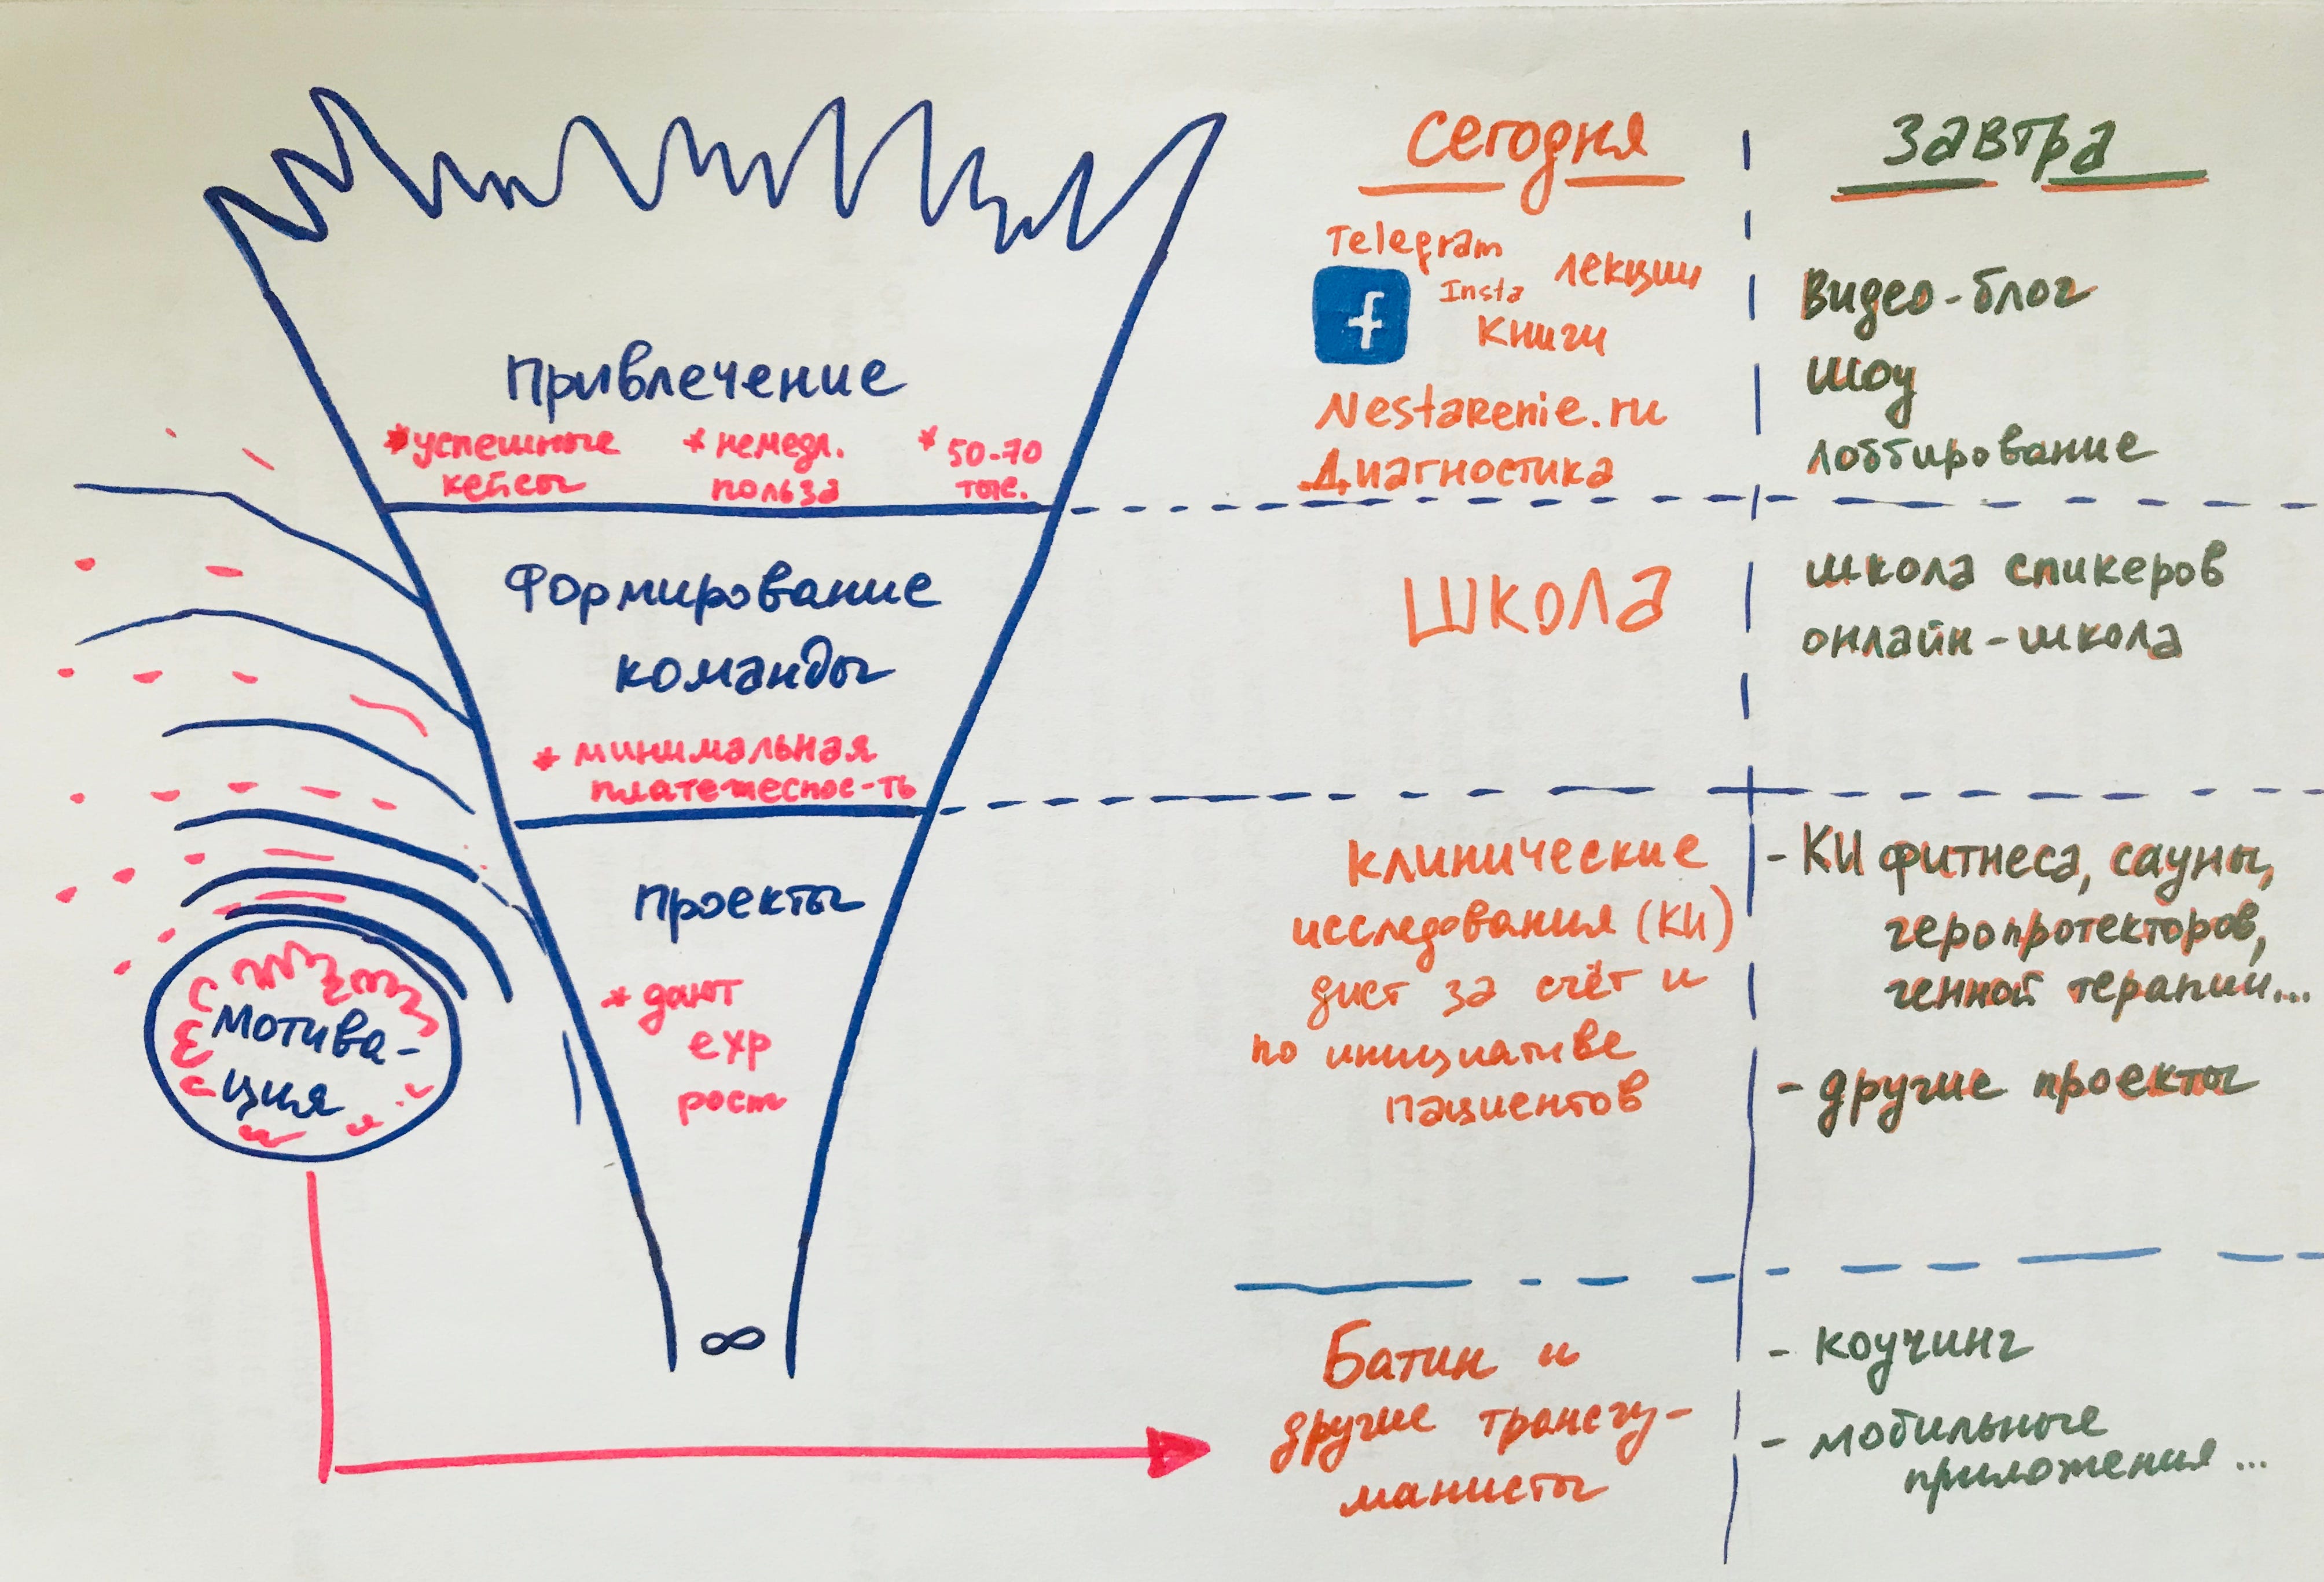 сегодня
завтра
Telegram
лекции
Insta
f
Книги
Nestarenie.ru
Диагностика
Видео-блог
Шоу
лоббирование
Привлечение
*успешные
кейсы
*немедл.
польза
*50-70
тыс.
Формирование
команды
*минимальная
платежеспос-ть
ШКОЛА
школа спикеров
онлайн-школа
Проекты
*дают
exp
рост
клинические
исследования (КИ)
диет за счёт и
по инициативе
пациентов
- КИ фитнеса, сауны,
геропротекторов,
генной терапии...
- другие проекты
Мотива-
ция
∞
Батин и
другие трансгу-
манисты
- коучинг
- мобильные
приложения...